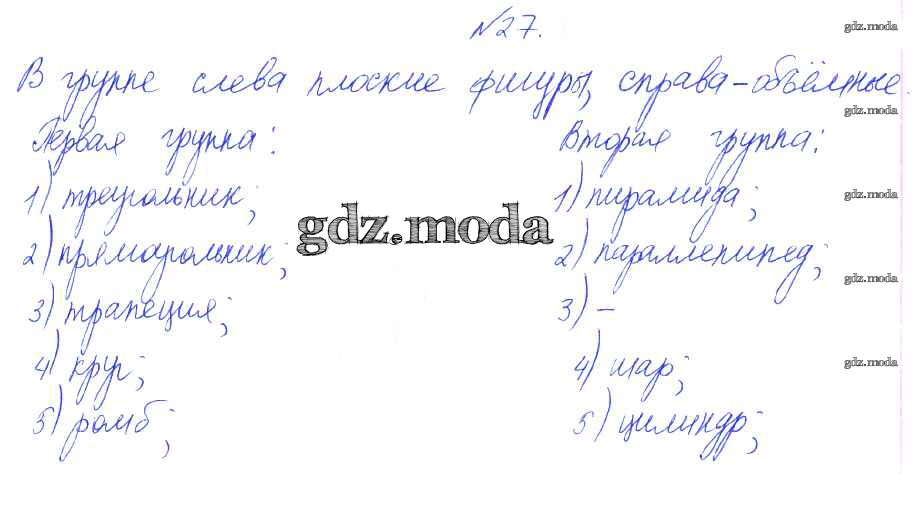 №27.
gdz.moda
В группе слева плоские фигуры, справа - объёмные
gdz.moda
Первая группа:
Вторая группа:
1) треугольник;
1) пирамида;
gdz.moda
gdz.moda
2) прямоугольник;
2) параллепипед;
gdz.moda
3) трапеция;
3) -
4) круг;
4) шар;
gdz.moda
5) ромб;
5) цилиндр;
gdz.moda